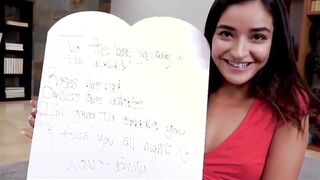 To the best
the world!
Roses are red
are white
I'm going to you
you all night
xoxo-Emily